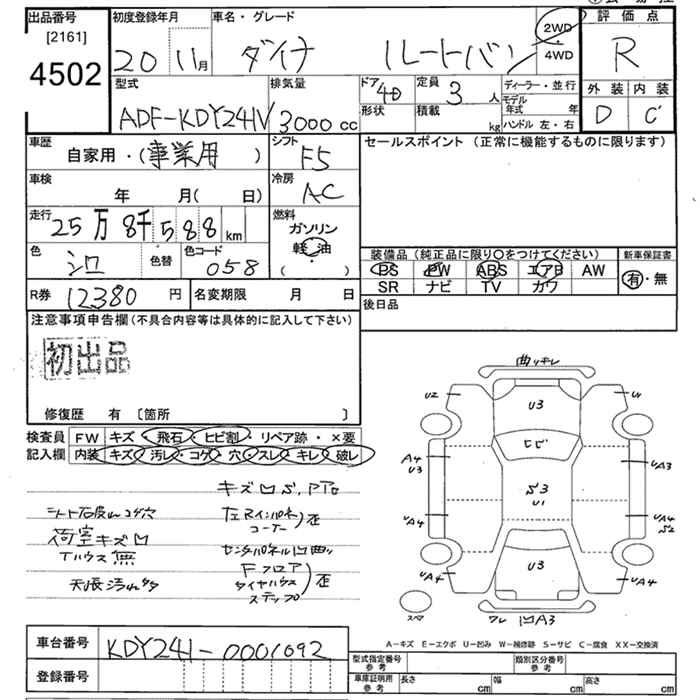 出品番号
[2161]
4502
初度登録年月
20 11月
車名・グレード
ダイナ ルートバン
2WD
・
4WD
評価点
R
外装 内装
D C
型式
ADF-KDY241V
排気量
3000cc
ドア
4D
形状
定員
3人
積載
kg
ディーラー・並行
モデル年式 年
ハンドル 左・右
車歴
自家用・(事業用)
シフト
F5
セールスポイント(正常に機能するものに限ります)
車検
年 月( 日)
冷房
AC
走行
25万8千588km
燃料
ガソリン
軽油
・
( )
色
シロ
色替
色コード
058
装備品(純正品に限り○をつけてください)
PS PW ABS エアB AW
SR ナビ TV カワ
新車保証書
有・無
R券 12380円
名変期限 月 日
後日品
注意事項申告欄(不具合内容等は具体的に記入して下さい)
初出品
修復歴 有 [箇所 ]
検査員記入欄
FW キズ・飛石・ヒビ割・リペア跡・×要
内装 キズ・汚レ・コゲ・穴・スレ・キレ・破レ
キズ凹S,アD
シート石皮レコゲ穴
荷室キズ凹
Tハウス無
天張汚レ
左Rインパネ
コーナー)歪
センタパネル凹曲り
Fフロア
タイヤハウス
ステップ)歪
曲ッキレ
U2
U3
U
ヒビ
A4
U3
UA3
S3
U1
UA4
UA4
S2
UA4
U3
UA4
スペア
ワレ 凹A3
A-キズ E-エクボ U-凹み W-補修跡 S-サビ C-腐食 XX-交換済
車台番号 KDY241-0001092
登録番号
型式指定番号 参考
類別区分番号 参考
車庫証明用 参考
長さ cm 幅 cm 高さ cm